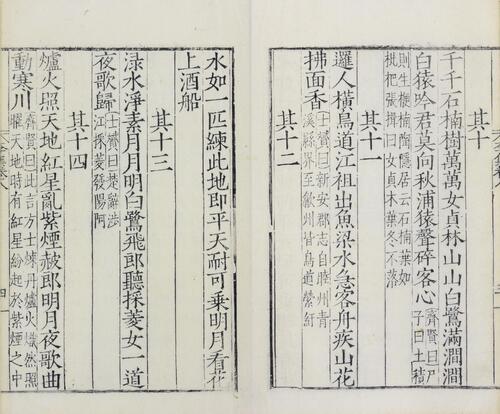 其十
千千石楠樹萬萬女貞林山山白鷺滿澗澗
白猿吟君莫向秋浦猿聲碎客心
齊賢曰尸
子曰土積
則生楩楠陶隱居云石楠葉如
枇杷張揖曰女貞木葉冬不落
其十一
邏人橫鳥道江祖出魚梁水急客舟疾山花
拂面香
士贇曰新安郡志自睦州青
溪縣界至歙州皆鳥道縈紆
其十二
水如一匹練此地即平天耐可乘明月看花
上酒船
其十三
淥水淨素月月明白鷺飛郎聽採菱女一道
夜歌歸
士贇曰楚辭涉
江採菱發陽阿
其十四
爐火照天地紅星亂紫煙赧郎明月夜歌曲
動寒川
齊賢曰此言方士煉丹爐火熾然照
曜天地時有紅星紛起於紫煙之中